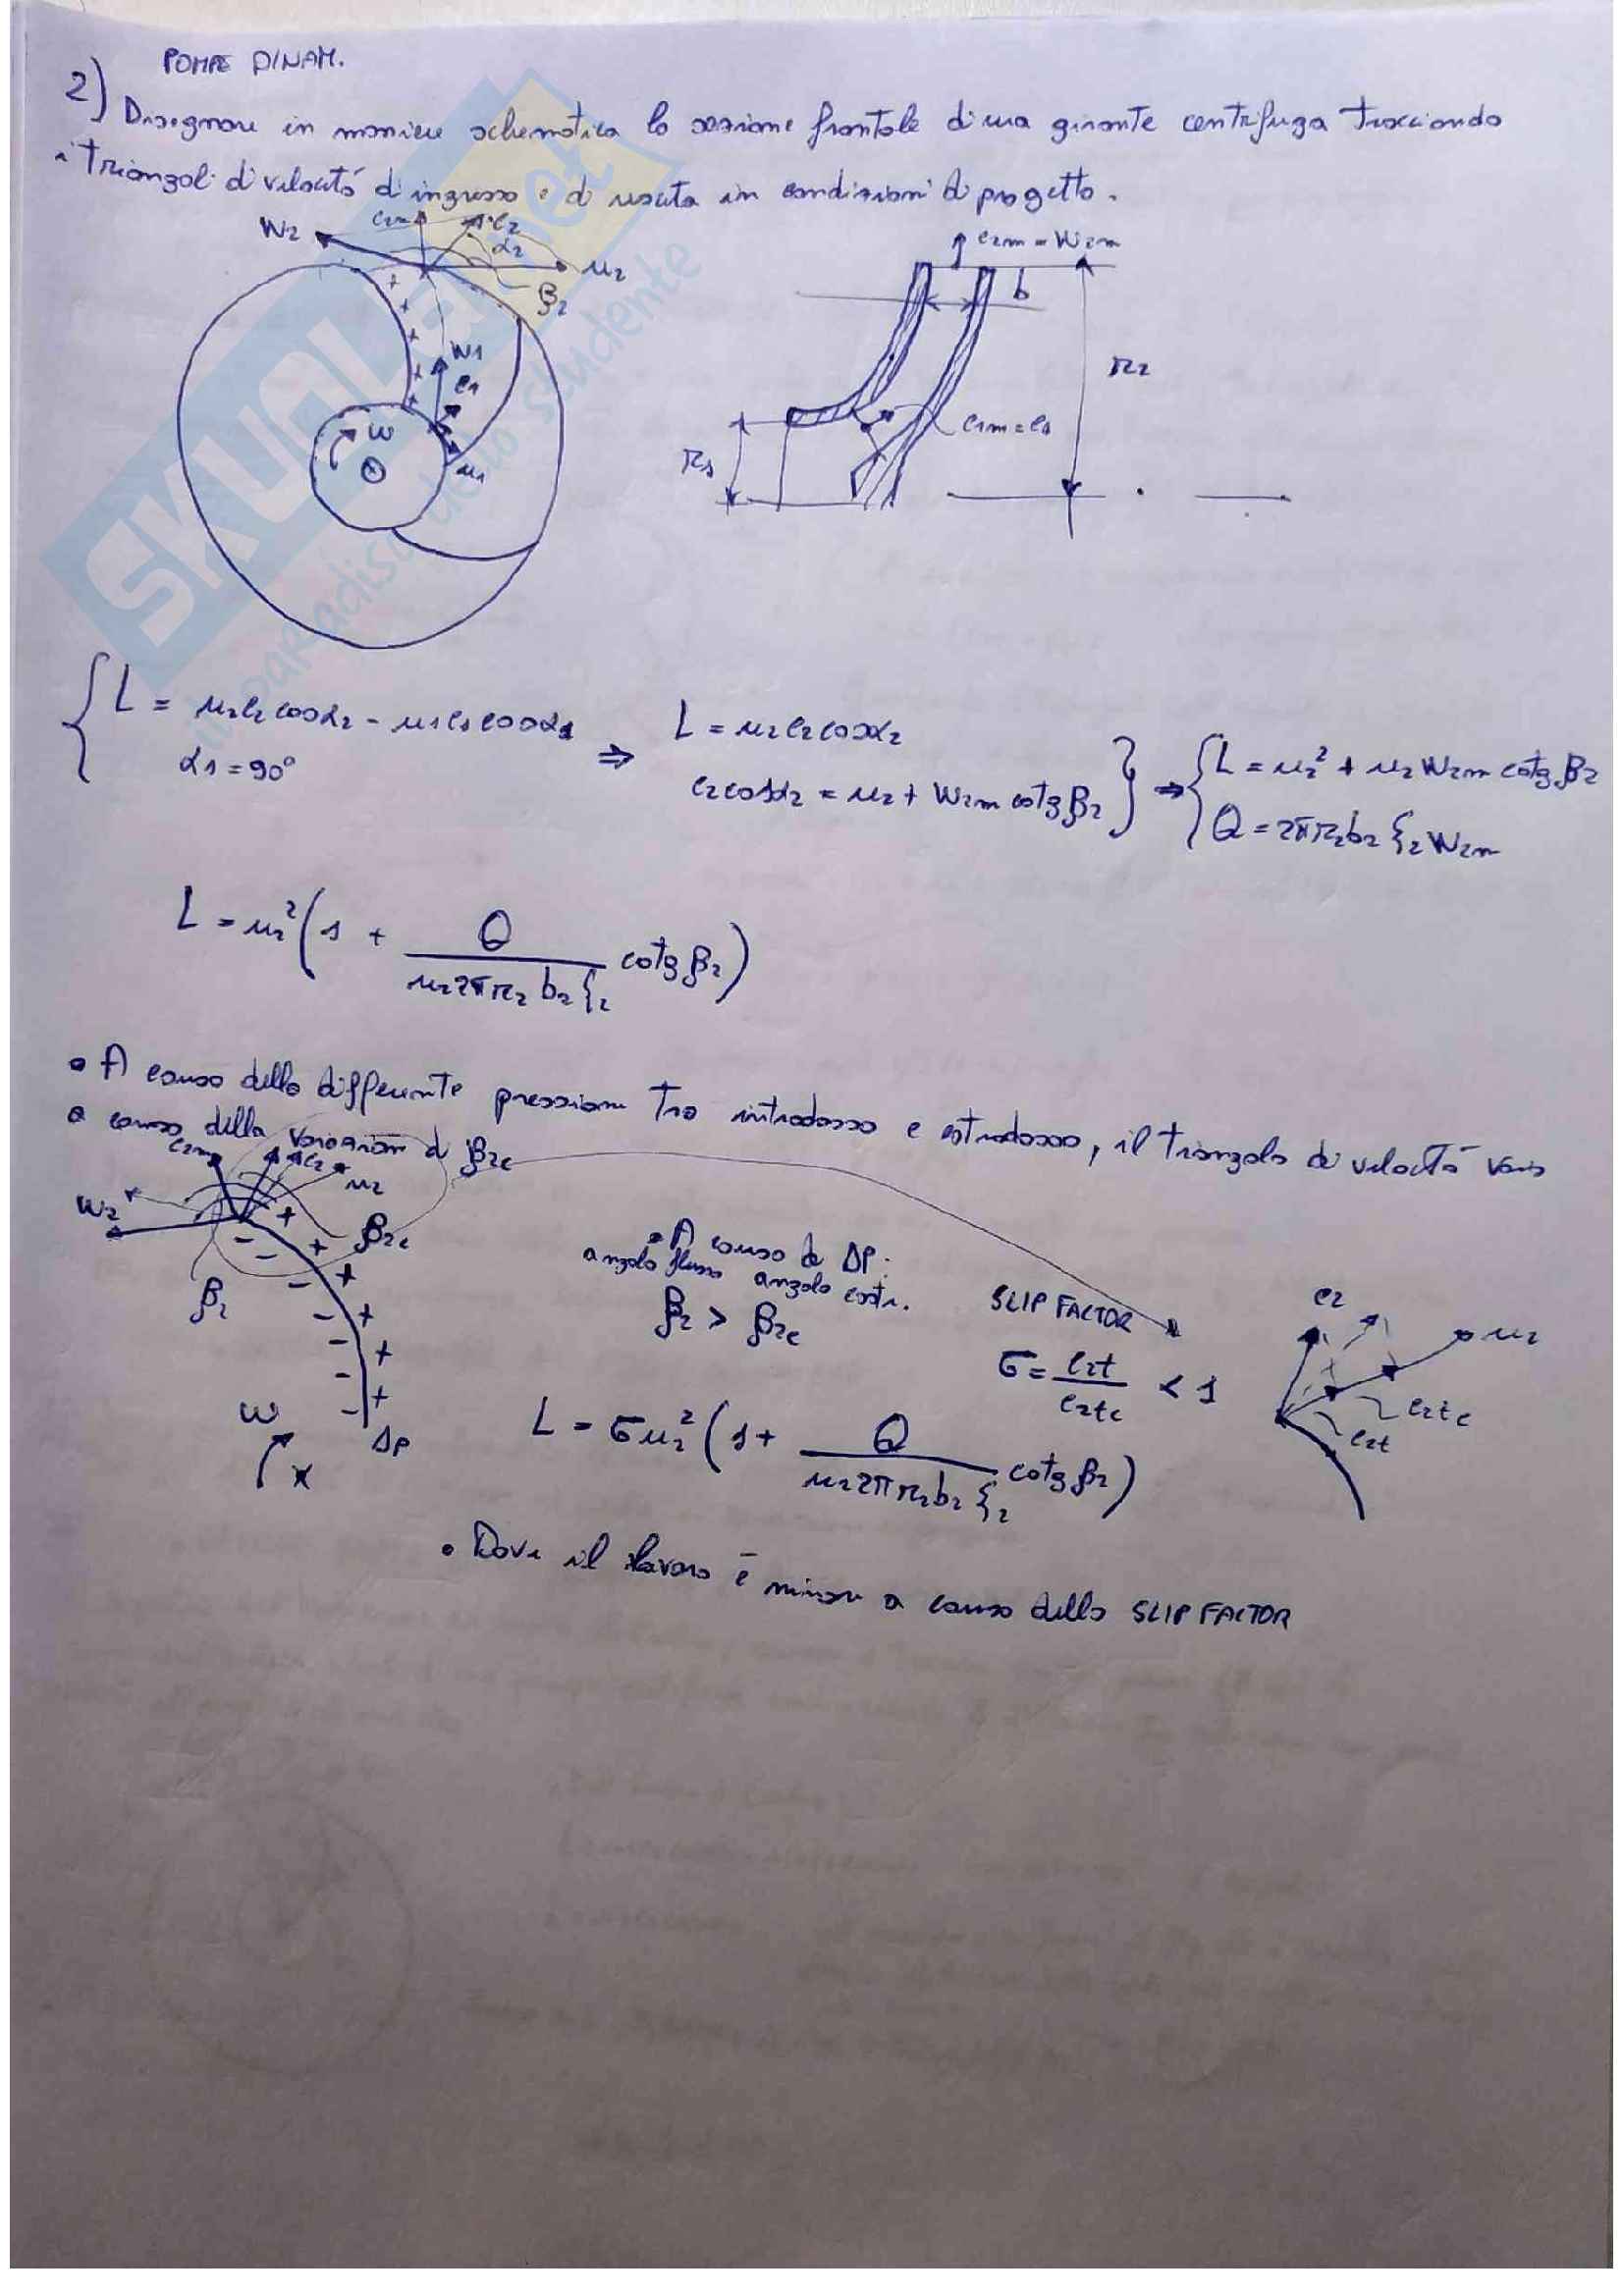 POMPE DINAM.
2) Disegnare in maniera schematica la sezione frontale di una girante centrifuga tracciando
i triangoli di velocità d'ingresso e di uscita in condizioni di progetto.
W2 c2m c2 α2 u2
β2
W1
c1
ω
u1
c2m = W2m
b
r2
c1m = c1
r1
L = u2c2cosα2 - u1c1cosα1
α1 = 90°
⇒
L = u2c2cosα2
c2cosα2 = u2 + W2m cotgβ2
⇒
L = u2² + u2 W2m cotgβ2
Q = 2πr2b2 ξ2 W2m
L = u2² (1 + Q / (u2 2πr2 b2 ξ2) cotgβ2)
• A causa della differente pressione tra intradosso e estradosso, il triangolo di velocità varia
a causa della variazione di β2c
c2m c2 u2
W2
β2c
β2
ω
ΔP
• A causa de ΔP:
angolo flusso angolo costr.
β2 > β2c
SLIP FACTOR
σ = c2t / c2tc < 1
c2
u2
c2tc
c2t
L = σu2² (1 + Q / (u2 2πr2b2 ξ2) cotgβ2)
• Dove il lavoro è minore a causa dello SLIP FACTOR
SKUOLA.net
il paradiso dello studente